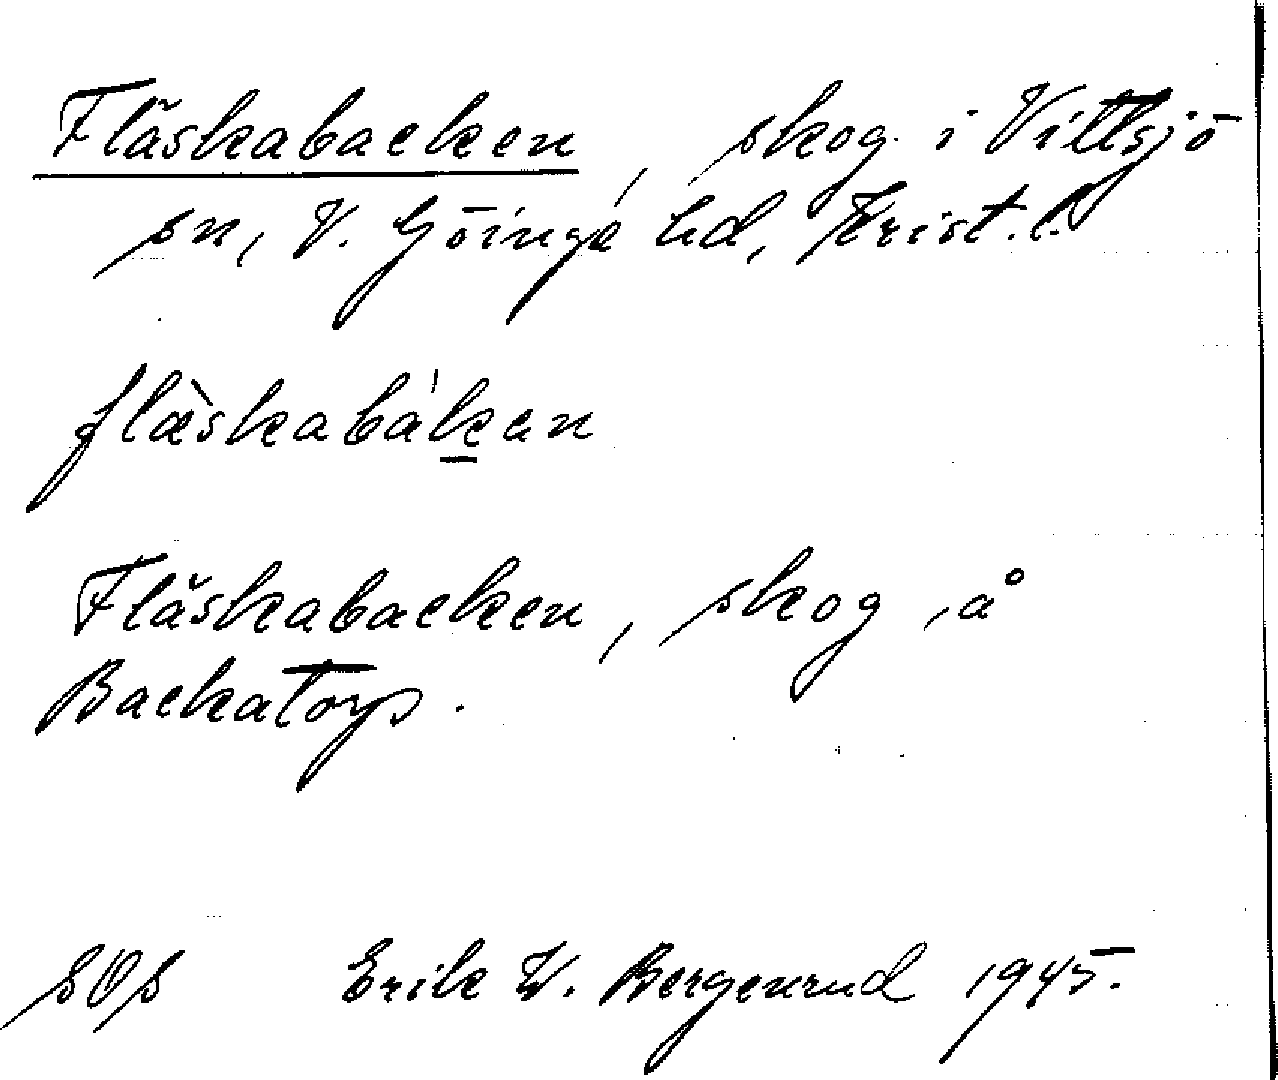 Fläskabacken, skog i Vittsjö
sn, V. Göinge hd, Krist. l.
flæ̀skabàk̲an
Fläskabacken, skog å
Backatorp.
SOS Erik W. Bergenrud 1945.